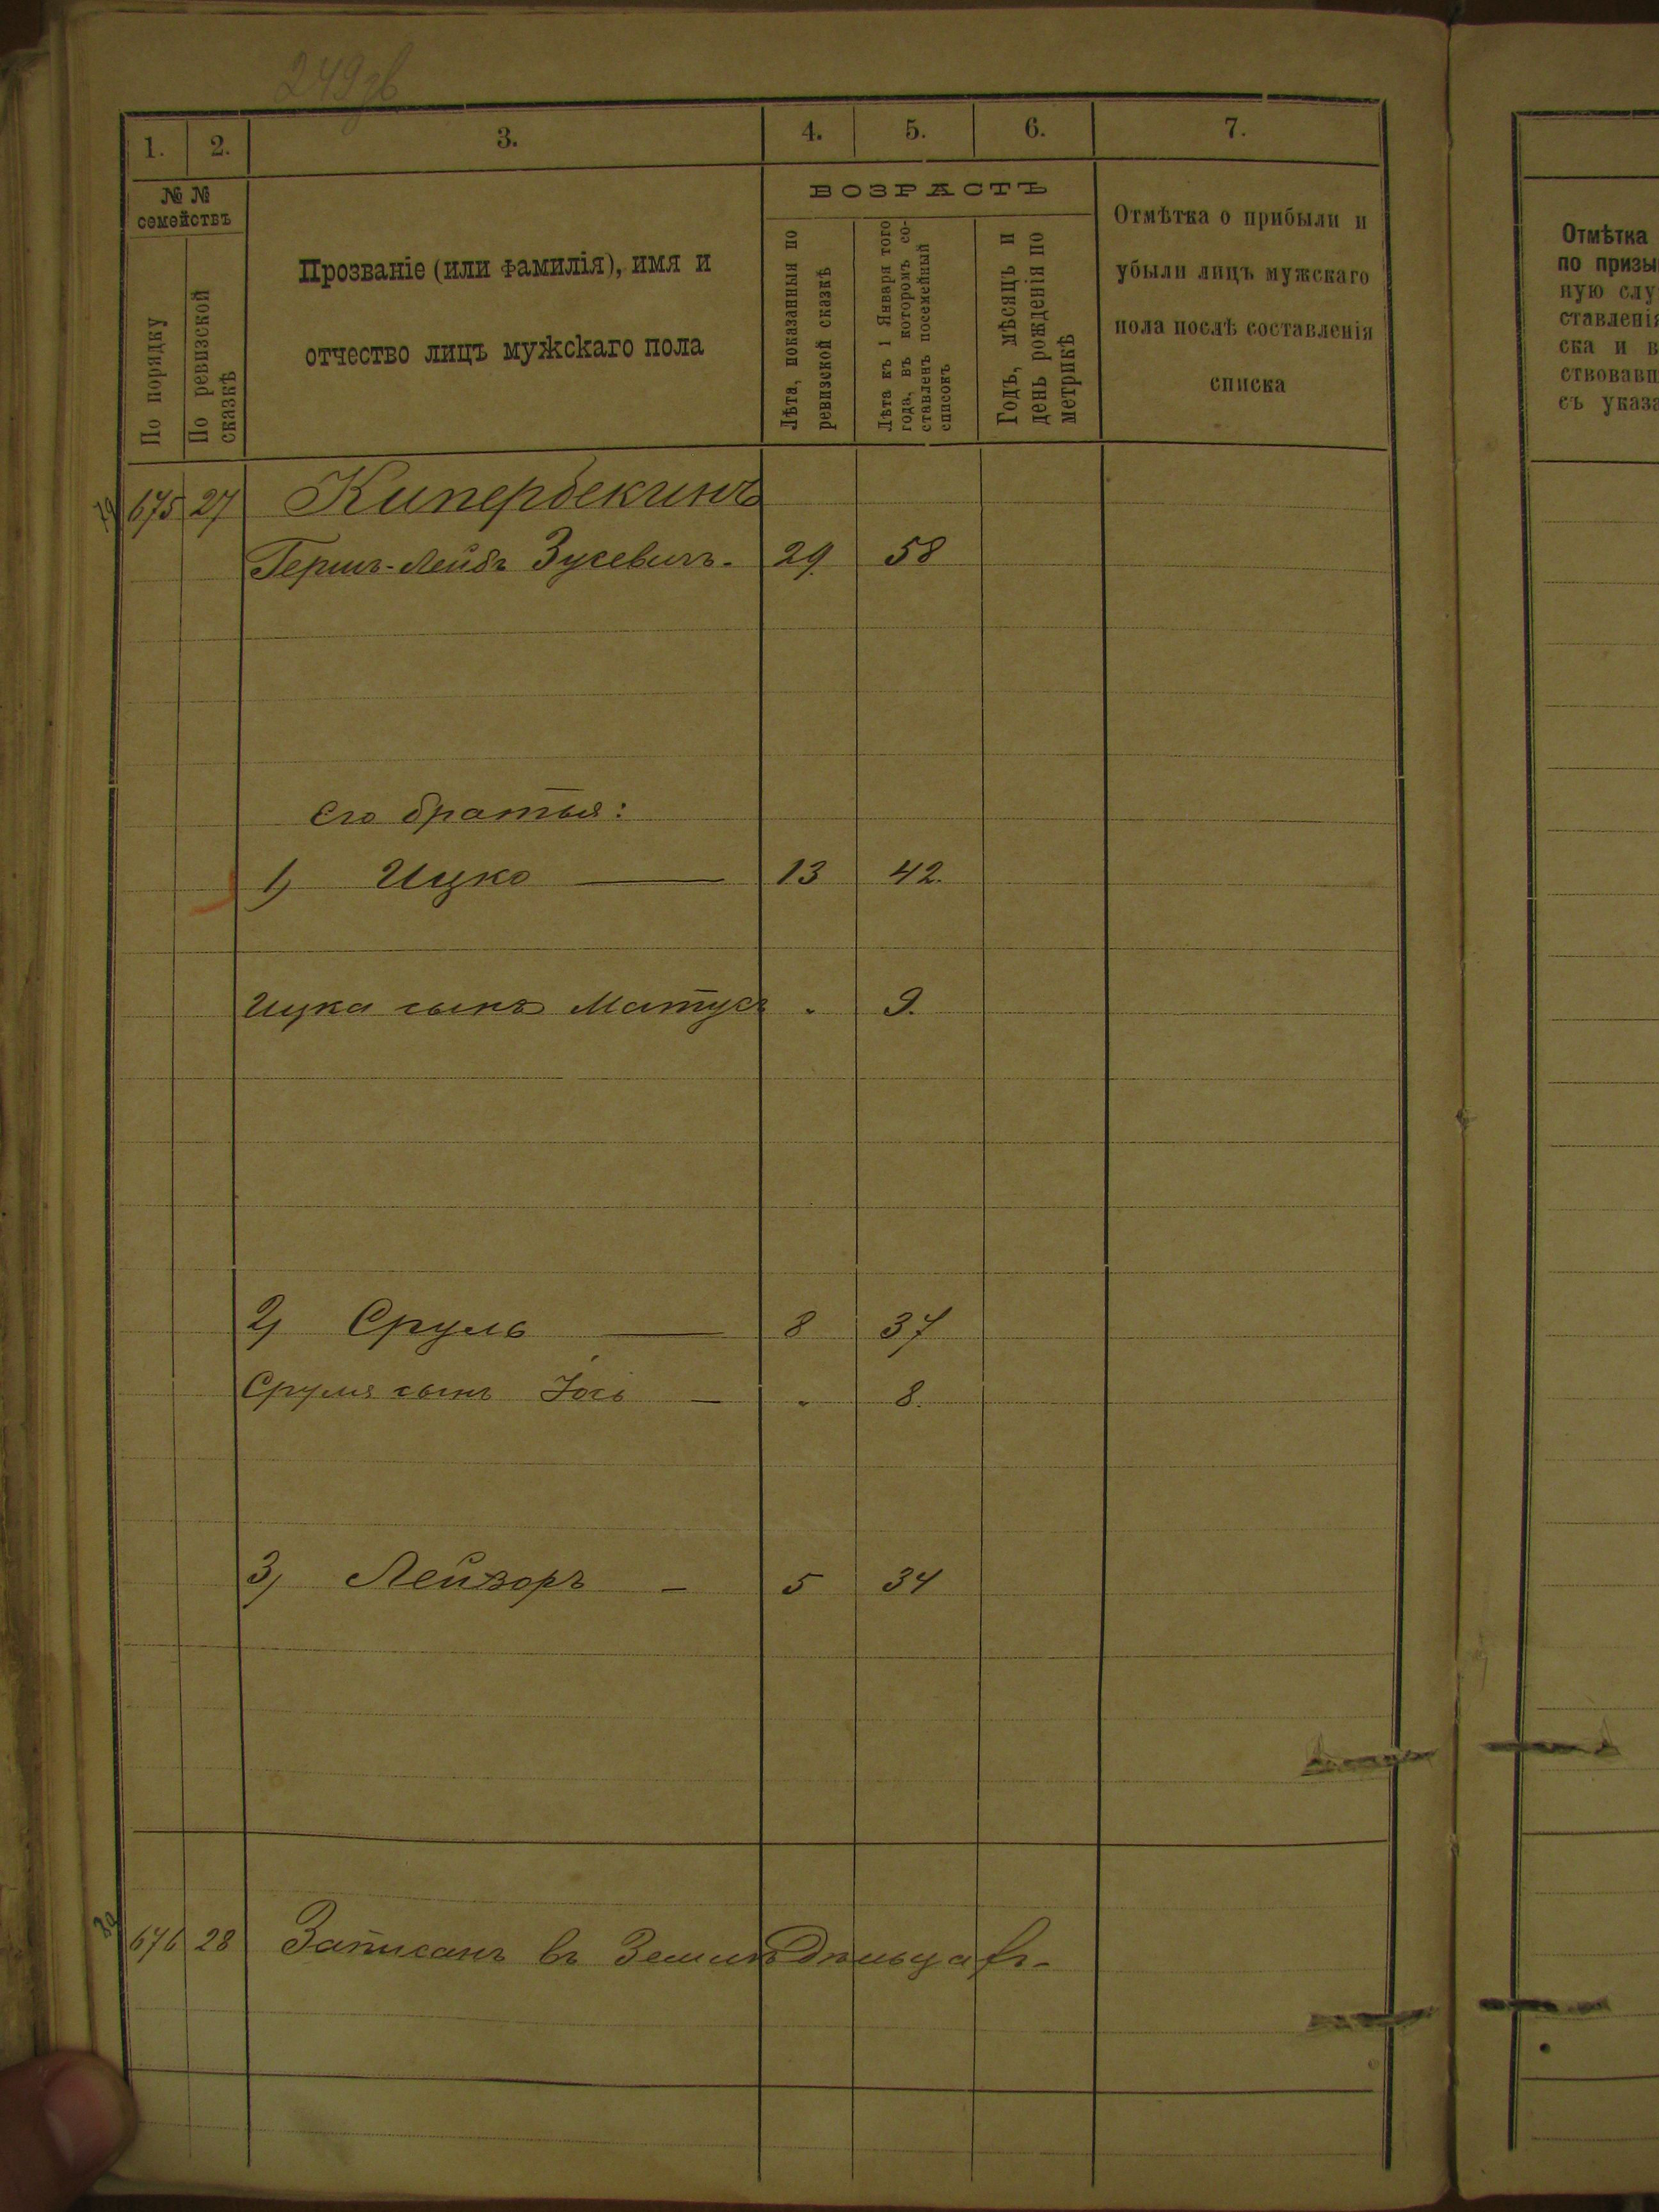 249 зв
1. 2. 3. 4. 5. 6. 7.
№ № семействъ
По порядку
По ревизской сказкѣ
Прозваніе (или фамилія), имя и
отчество лицъ мужскаго пола
ВОЗРАСТЪ
Лѣта, показанныя по
ревизской сказкѣ
Лѣта къ 1 Января того
года, въ которомъ со-
ставленъ посемейный
списокъ
Годъ, мѣсяцъ и
день рожденія по
метрикѣ
Отмѣтка о прибыли и
убыли лицъ мужскаго
пола послѣ составленія
списка
675 27 Кипербекинъ
Гершъ-Лейбъ Зусевичъ. 29. 58
Его братья:
1) Ицко — 13 42.
Ицка сынъ Матусъ " 9.
2) Сруль — 8 37
Сруля сынъ Іось — " 8.
3) Лейзоръ - 5 34
676 28 Записанъ въ Земледѣльцахъ-
Отмѣтка
по призы
ную слу
ставленія
ска и в
ствовавш
съ указа